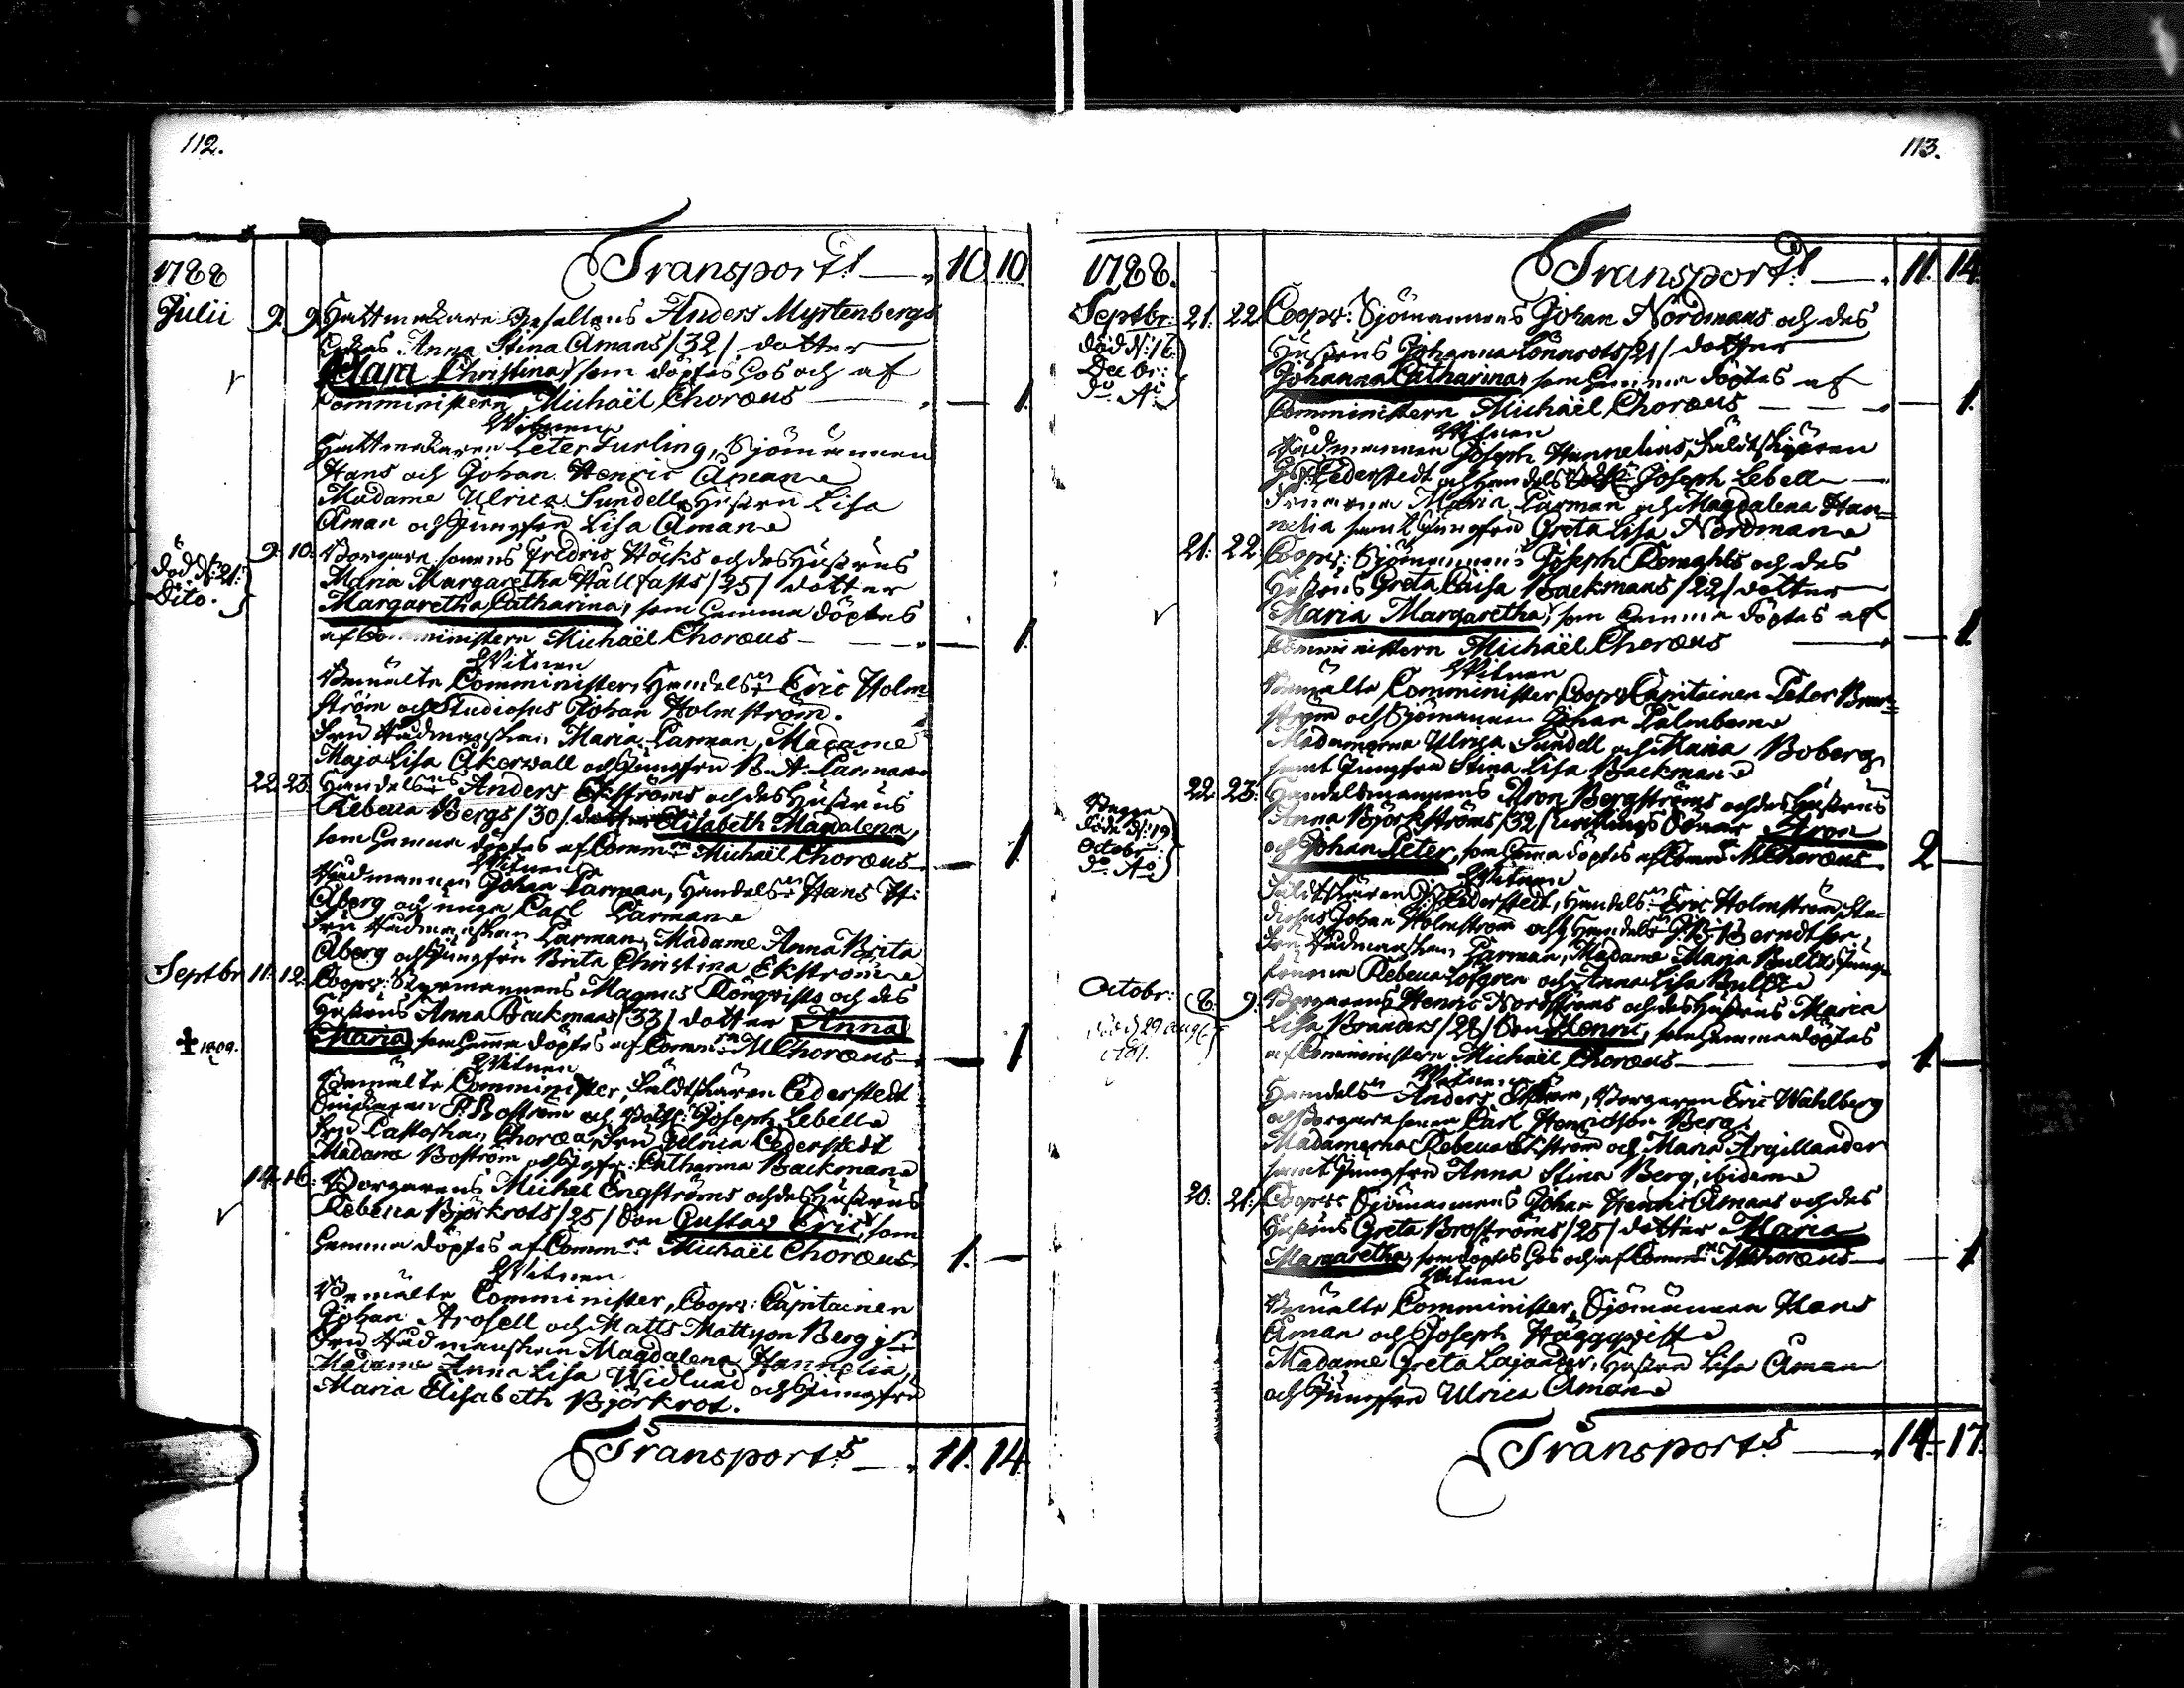 112.
Transport! — 10. 10.
1788
Julii 9. 9. Hattmakare Gesellens Anders Myrtenbergs
Anna Stina Åmans /32/ dotter
Clara Christina, som döptes hos och af
Comministern Michaël Choræus — 1.
Witnen
Hattmakaren Peter Furling, Sjömännen
Hans och Johan Henric Åman
Madame Ulrica Sundell, Hustru Lisa
Åman och Jungfru Lisa Åman
död d: 21:
Dito.
9. 10. Borgare sonens Fredric Höcks och des Hustrus
Maria Margaretha Hallfasts /25/ dotter
Margaretha Catharina, som hemma döptes
af Comministern Michaël Choræus — 1.
Witnen
Bemälte Comminister, Handelsm: Eric Holm=
ström och Studiosus Johan Holmström.
Fru Rådmanskan Maria Carman, Madame
Maja Lisa Åkerwall och Jungfru B. A. Carman
22. 23. Handelsm: Anders Ekströms och des Hustrus
Rebecca Bergs /30/ dotter Elisabeth Magdalena,
som hemma döptes af Comm: Michaël Choræus — 1.
Witnen
Rådmannen Johan Carman, Handelsm: Hans H:
Åberg och unga Carl Carman
Fru Rådmanskan Carman, Madame Anna Brita
Åberg och Jungfru Brita Christina Ekström
Septbr 11. 12. Coopv: Styrmannens Magnus Rönqvists och des
Hustrus Anna Backmans /33/ dotter Anna
Maria, som hemma döptes af Comm: M Choræus — 1
✝ 1809.
Witnen
Bemälte Comminister, Fältskären Cederstedt
P. Boström och Joseph Lebell
Fru Pastorskan Choræa, Fru Ulrica Cederstedt
Madame Boström och Jgfr: Catharina Backman
14. 16. Borgarens Michel Engströms och des Hustrus
Rebecca Björkrots /25/ Son Gustav Eric, som
hemma döptes af Comm: Michaël Choræus 1. —
Witnen
Bemälte Comminister, Coopv: Capitainen
Johan Arosell och Matts Mattson Berg
Fru Rådmanskan Magdalena Hannelia,
Madame Anna Lisa Widlund och Jungfru
Maria Elisabeth Björkrot.
Transport: — 11. 14.
113.
Transport! — 11. 14.
1788.
Septbr: 21. 22. Coopv: Sjömannens Johan Nordmans och des
Hustrus Johanna Lönnrots /21/ dotter
Johanna Catharina, som hemma döptes af
Comministern Michaël Choræus — 1.
död d: 16
Decbr:
do Ao
Witnen
Rådmannen Joseph Hannelius, Fältskären
Cederstedt och Handels Joseph Lebell
Fruarna Maria Carman och Magdalena Han=
nelia samt Jungfru Greta Lisa Nordman
21. 22. Coopv: Sjömannens Joseph Remahls och des
Hustrus Greta Caisa Backmans /22/ dotter
Maria Margaretha, som hemma döptes af
Comministern Michaël Choræus — 1.
Witnen
Bemälte Comminister, Coopv: Capitainen Peter Bro=
ström och Sjömannen Johan Palmbom
Madamerna Ulrica Sundell och Maria Boberg
samt Jungfru Stina Lisa Backman
22. 23. Handelsmannens Aron Bergströms och des Hustrus
Anna Björkströms /32/ twillings Söner Aron
och Johan Peter, som hema döptes af Comm: M Choræus 2 —
Begge
döde d: 19
October
do Ao
Witnen
Fältskären Cederstedt, Handelsm: Eric Holmström, Stu=
diosus Johan Holmström och Handelsm: Berndtson,
Fru Rådmanskan Carman, Madame Maria Jung=
fruarna Rebecca Löfgren och Anna Lisa
Octobr: 8. 9. Borgarens Henric Nordströms och des Hustrus Maria
Lisa Branders /28/ Son Henric, som hemma döptes
af Comministern Michaël Choræus — 1. —
död d 29 Aug
Witnen
Handelsm: Anders Ekström, Borgaren Eric Wahlberg
och Borgare sonen Carl Henricsson Berg.
Madamerna Rebecca Ekström och Maria Argillander
samt Jungfru Anna Stina Berg, ibidem
20. 21. Coopv: Sjömannens Johan Henric Åmans och des
Hustrus Greta Broströms /25/ dotter Maria
Margaretha, som döptes hos och af Comm: M Choræus — 1
Witnen
Bemälte Comminister, Sjömännen Hans
Åman och Joseph Häggqvist
Madame Greta Lajander, Hustru Lisa Åman
och Jungfru Ulrica Åman
Transport: — 14. 17.